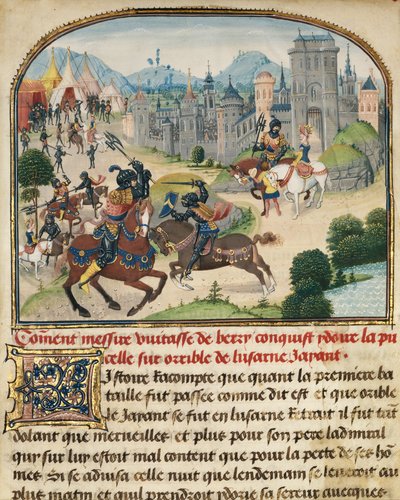 Coment messire wistasse de berry conquist ydore la pu
celle sur orrible de lusarne Jayant ·
Histoire Racompte que quant la premiere ba
taille fut passee comme dit est et que orible
le Jayant se fut en lusarne Retrait il fut tāt
dolant que merueilles et plus pour son pere ladmiral
quy sur luy estoit mal content que pour la perte de ses hō
mes Si se aduisa celle nuit que lendemain se leueroit au
plus matin et quil prendroit ydore sa sereur auecques